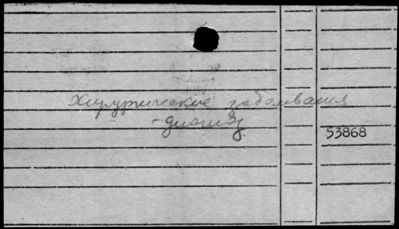 Хирургические заболевания
- диагноз
53868